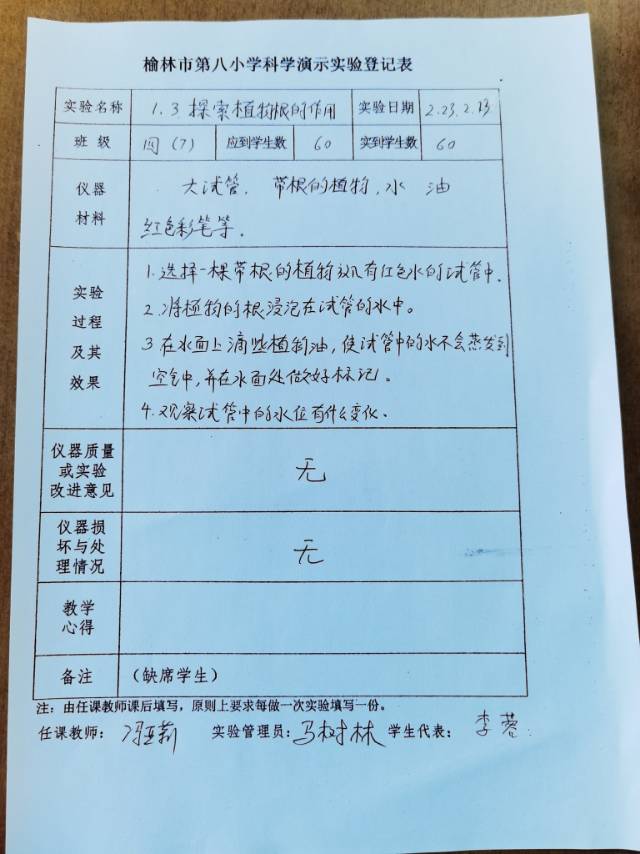 榆林市第八小学科学演示实验登记表
实验名称 1.3 探索植物根的作用 实验日期 2.23.2.13
班 级 四(7) 应到学生数 60 实到学生数 60
仪器材料 大试管、带根的植物、水 油
红色彩笔等.
实验过程及其效果
1.选择一棵带根的植物 有红色水的试管中.
2.将植物的根浸泡在试管的水中。
3 在水面上滴些植物油,使试管中的水不会蒸发到
空气中,并在水面处做好标记。
4.观察试管中的水位有什么变化.
仪器质量
或实验
改进意见
无
仪器损
坏与处
理情况
无
教学
心得
备注 (缺席学生)
注:由任课教师课后填写,原则上要求每做一次实验填写一份。
任课教师: 冯亚莉 实验管理员: 马树林 学生代表: 李蓉